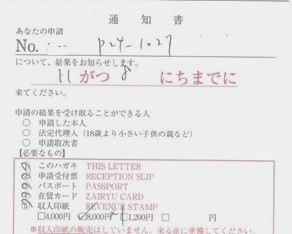 通知書
あなたの申請
No. P24-1027
について、結果をお知らせします。
11がつ8にちまでに
来てください。
申請の結果を受け取ることができる人
○ 申請した本人
○ 法定代理人（18歳より小さい子供の親など）
○ 申請取次者
【必要なもの】
このハガキ THIS LETTER
申請受付票 RECEPTION SLIP
パスポート PASSPORT
在留カード ZAIRYU CARD
収入印紙 REVENUE STAMP
□4,000円 □8,000円 □1,200円 □ 円
※収入印紙の販売はしていません。来る前に準備してください。